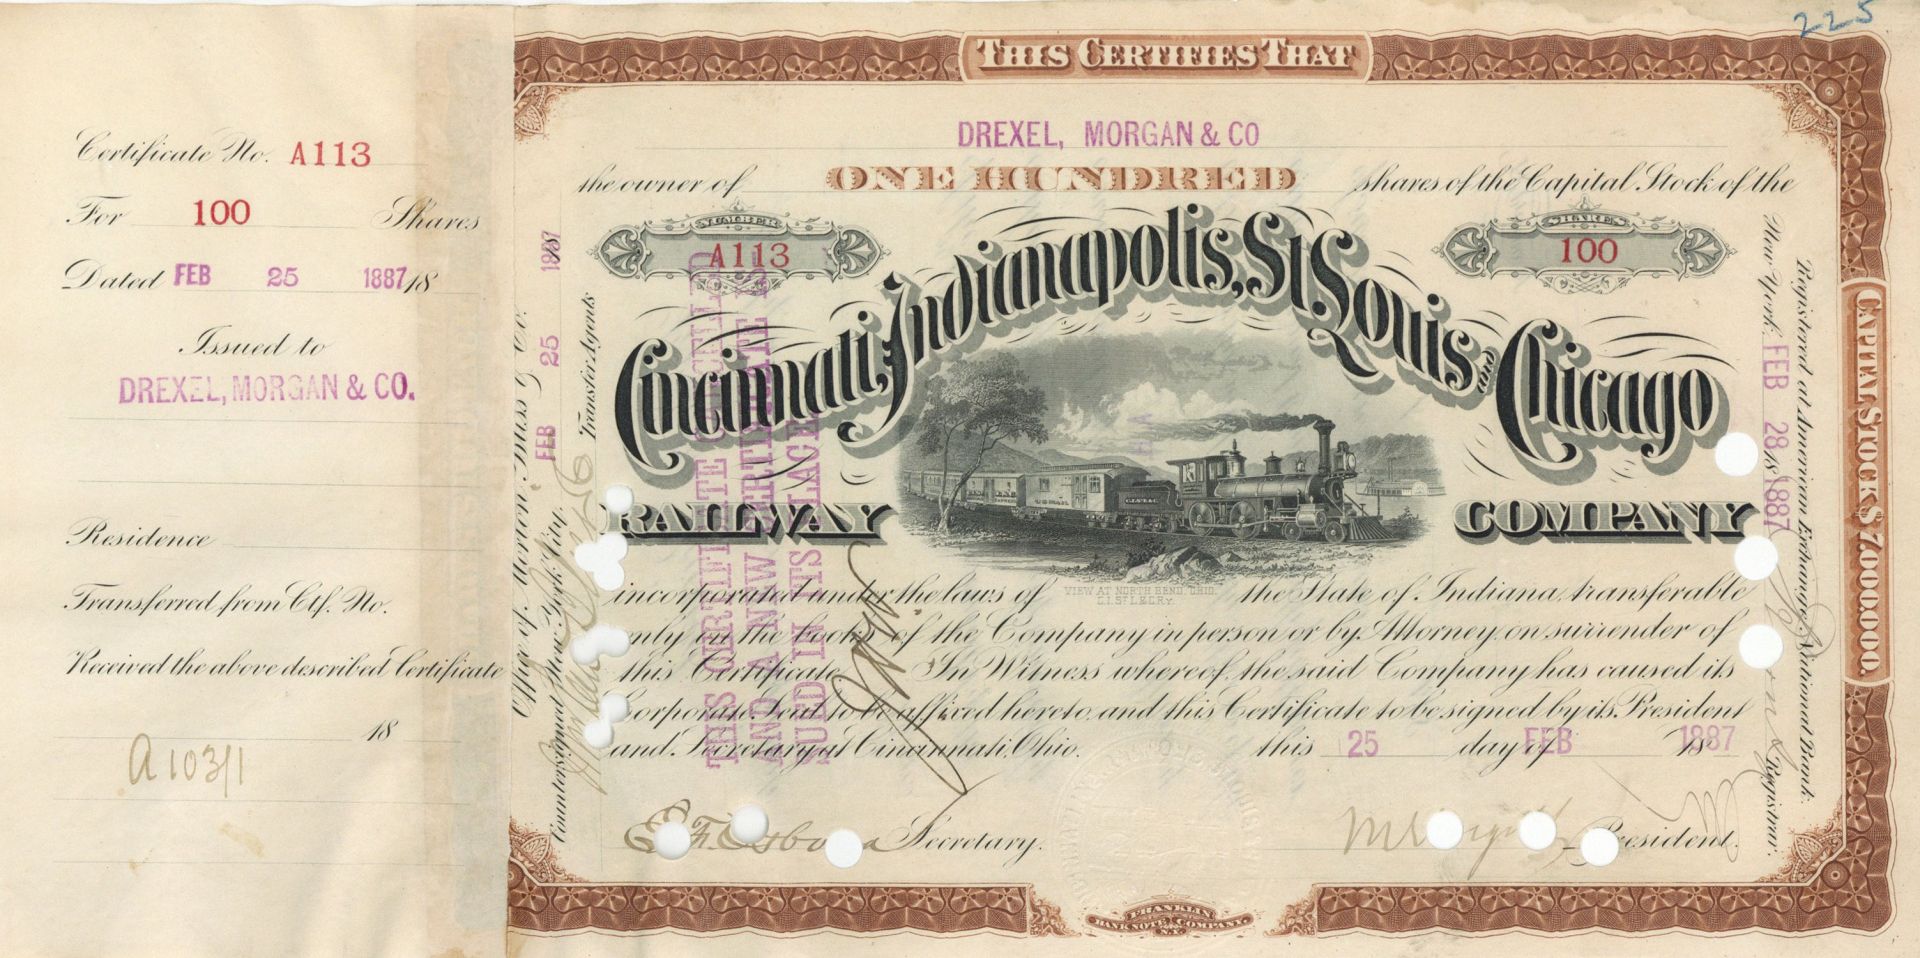 Certificate No. A113
For 100 Shares
Dated FEB 25 1887 18
Issued to
DREXEL, MORGAN & CO.
Residence
Transferred from Ctf. No.
Received the above described Certificate
18
A 103/1
225
THIS CERTIFIES THAT
DREXEL, MORGAN & CO
the owner of ONE HUNDRED shares of the Capital Stock of the
NUMBER
A113
SHARES
100
Cincinnati, Indianapolis, St Louis and Chicago
RAILWAY COMPANY
U.S. MAIL
VIEW AT NORTH BEND, OHIO.
C.I.ST.L.&C.RY.
incorporated under the laws of the State of Indiana, transferable
only on the books of the Company in person or by Attorney on surrender of
this Certificate. In Witness whereof the said Company has caused its
Corporate Seal to be affixed hereto and this Certificate to be signed by its President
and Secretary at Cincinnati, Ohio. this 25 day of FEB 1887
Secretary.
President.
FRANKLIN
BANK NOTE COMPANY,
N.Y.
Office of Morton, Bliss & Co. FEB 25 1887
Countersigned New York City. Transfer Agents
THIS CERTIFICATE CANCELLED
AND A NEW CERTIFICATE IS
SUED IN ITS PLACE
New York, FEB 28 1887 Registrar.
Registered at American Exchange National Bank.
CAPITAL STOCK $7,000,000.